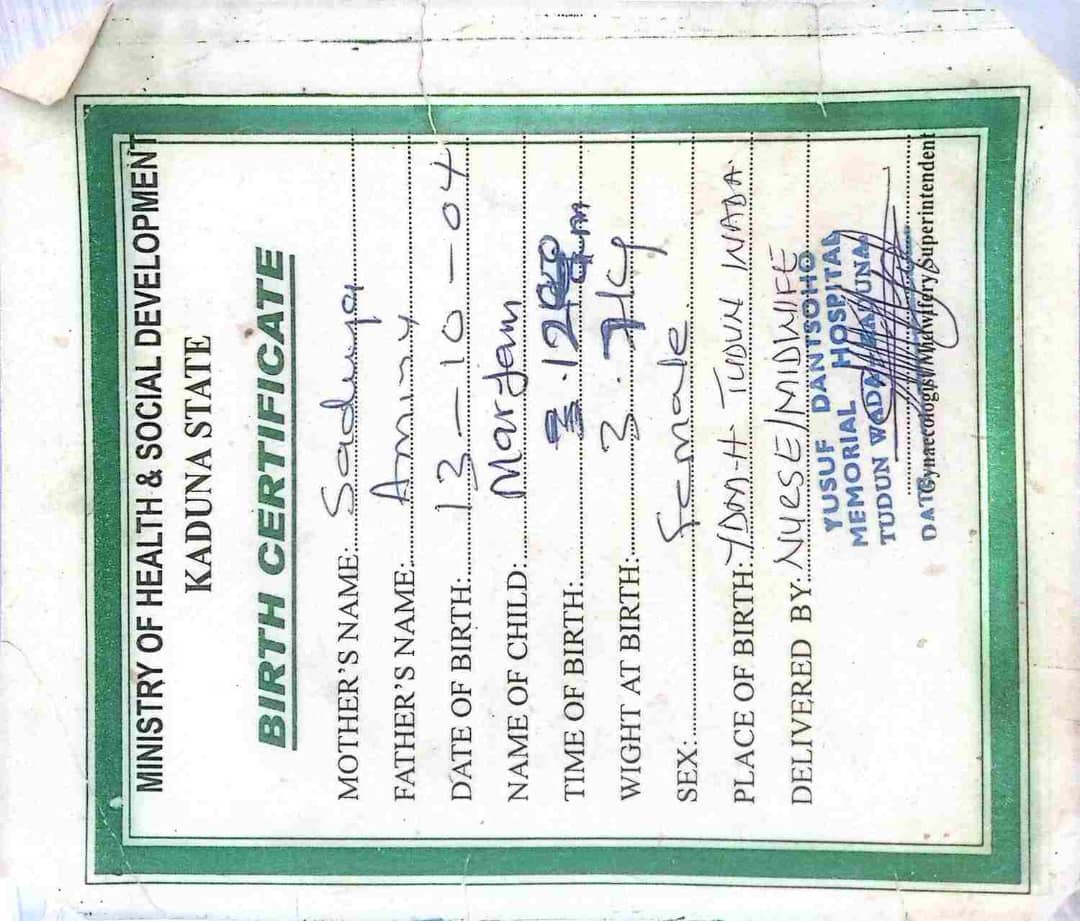 MINISTRY OF HEALTH & SOCIAL DEVELOPMENT
KADUNA STATE
BIRTH CERTIFICATE
MOTHER'S NAME: Sadiya
FATHER'S NAME: Aminu
DATE OF BIRTH: 13-10-04
NAME OF CHILD: Maryam
TIME OF BIRTH:
WIGHT AT BIRTH: 3.7kg
SEX: Female
PLACE OF BIRTH: YDM-H TUDUN WADA
DELIVERED BY: NURSE/MIDWIFE
YUSUF DANTSOHO
MEMORIAL HOSPITAL
TUDUN WADA KADUNA
DATE
Gynaecologist/Midwifery Superintendent